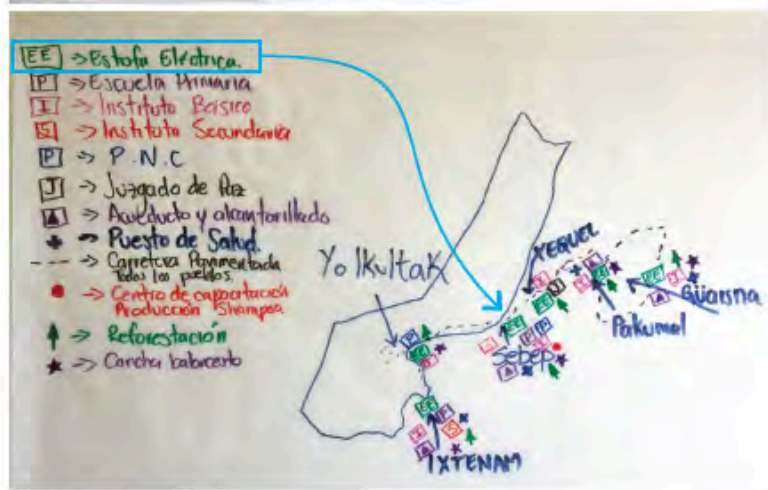 EE → Estofa Eléctrica.
P → Escuela Primaria
I → Instituto Básico
S → Instituto Secundaria
P → P.N.C
J → Juzgado de Paz
▲ → Acueducto y alcantarillado
+ → Puesto de Salud.
--- → Carretera Pavimentada
Todos los pueblos.
● → Centro de capacitación
Producción Shampoo
↑ → Reforestación
★ → Cancha baloncesto
Yolkultak
XEQUEL
Güaisna
Pakumal
Sebep
IXTENAM
EE
EE
EE
EE
EE
EE